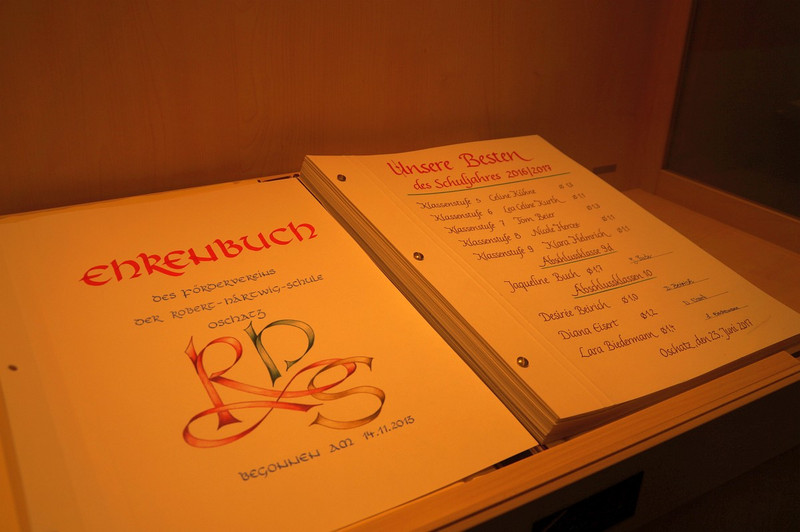 EHRENBUCH
DES FÖRDERVEREINS
DER ROBERT-HÄRTWIG-SCHULE
OSCHATZ
RHS
BEGONNEN AM 14.11.2013
Unsere Besten
des Schuljahres 2016/2017
Klassenstufe 5 Celine Kühne
Klassenstufe 6 Lea Celine Kurth
Klassenstufe 7 Tom Beier
Klassenstufe 8 Nicole
Klassenstufe 9 Kiara Helmrich
Abschlussklasse 9d
Jaqueline Buch Ø 1,7
Abschlussklassen 10
Desirée Beirich Ø 1,0
Diana Eisert Ø 1,2
Lara Biedermann Ø 1,4
Oschatz, den 23. Juni 2017